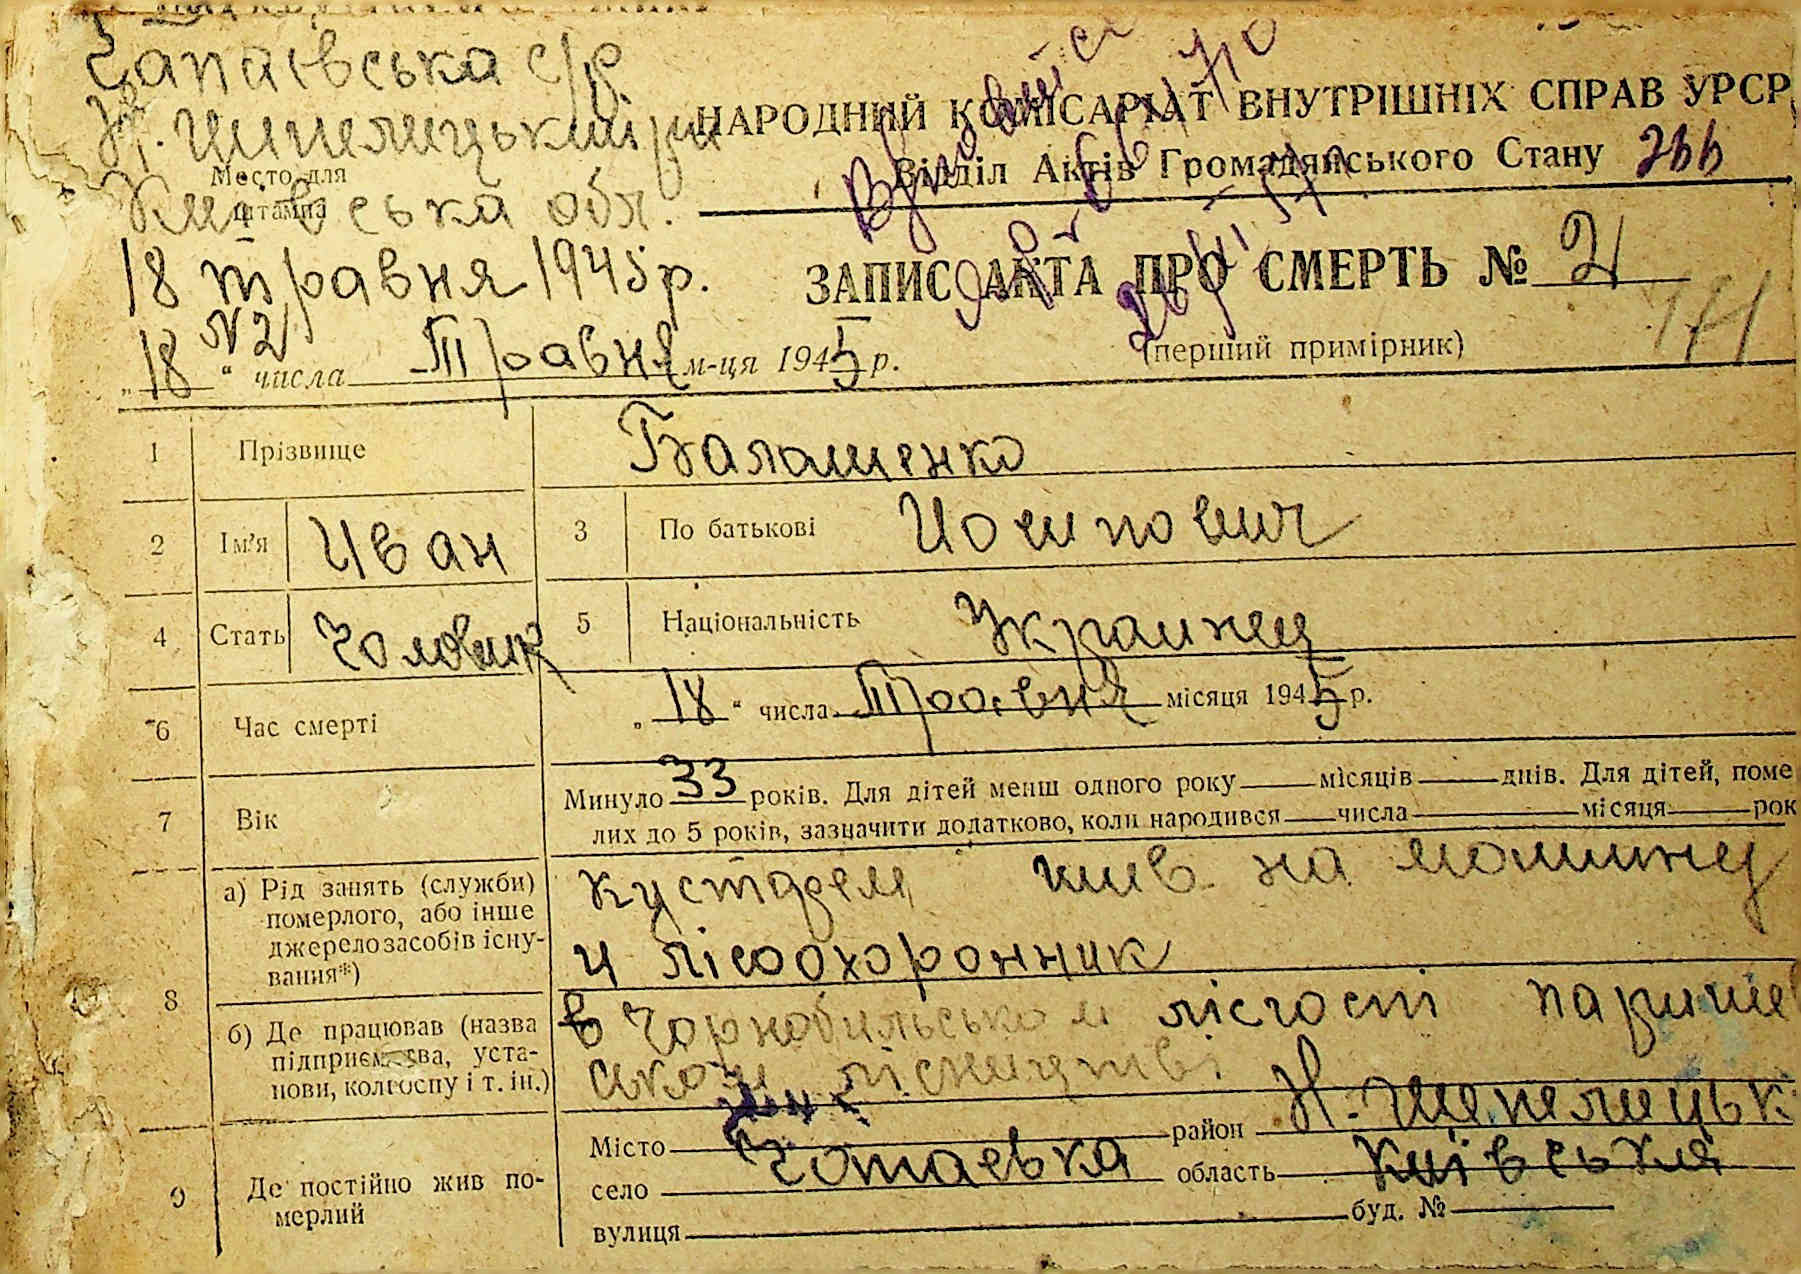 Чапаєвська с/р.
Н. Шепелицький р-н
Место для
штампа
Київська обл.
18 травня 1945 р.
№ 21
НАРОДНИЙ КОМІСАРІАТ ВНУТРІШНІХ СПРАВ УРСР
Відділ Актів Громадянського Стану
ЗАПИС АКТА ПРО СМЕРТЬ № 21
(перший примірник)
171
„18“ числа Травня м-ця 1945 р.
1 Прізвище Балашенко
2 Ім'я Иван 3 По батькові Иосипович
4 Стать Чоловик 5 Національність Украинец
6 Час смерті „18“ числа Травня місяця 1945 р.
7 Вік Минуло 33 років. Для дітей менш одного року місяців днів. Для дітей, поме
лих до 5 років, зазначити додатково, коли народився числа місяця рок
8 а) Рід занять (служби)
померлого, або інше
джерело засобів існу-
вания*)
кустарем на
и лісоохоронник
б) Де працював (назва
підприємства, уста-
нови, колгоспу і т. ін.)
в Чорнобильском лісгоспі паришев
ском лісництві
9 Де постійно жив по-
мерлий
Місто район Н. Шепелицьк
село область Київська
вулиця буд. №